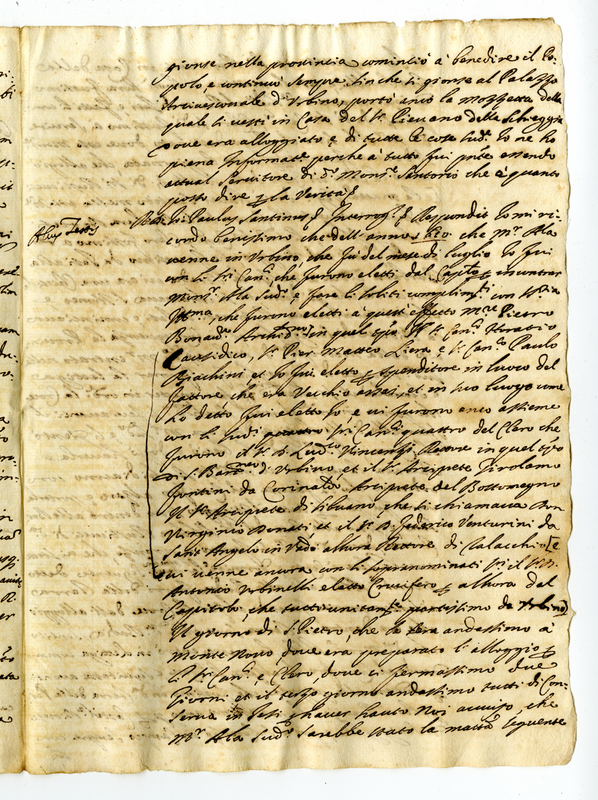 gionse nella provincia cominciò à benedire il Po-
polo, e continuò sempre finche si gionse al Palazzo
Arcivescovale d'Urbino, portò anco la Mozzetta della
quale si vestì in Casa del Sr. Pievano della Schieggia
dove era alloggiato e di tutte le cose sude. Io ne ho
piena Informate. perche à tutto fui pnte. essendo
actual Servitore di do. Monsr. Santorio che è quanto
posso dire la Verità
Alius Testis
Paulus Santinus Interrog. Respondit Io mi ri-
cordo benissimo che dell'anno che Mr. Ala
venne in Urbino, che fu del mese di luglio Io fui
con li Sri. Canci. che furono eletti dal Capto. incontrar
Monsr. Ala sudo. e fare li soliti complimti. con Sria.
Illma. che furono eletti à quest'effetto Mre. Pietro
Bonav. Archid. in quel tpo. Il Sr. Canco. Horatio
Causidico, Sr. Pier Matteo e Sr. Canco. Paulo
Biachini, et Io fui eletto Spenditore in luoco del
fattore che era Vecchio assai, et in suo luogo come
ho detto fui eletto Io, e vi furono anco assieme
con li sudi. Sri. Canci. quattro del Clero che
furono il Sr. D. Ludco. Vincenzi Rettore in quel tpo.
di S. d'Urbino et il Sr. Arciprete Girolamo
Fontini da Corinaldo Arciprete del
Il Sr. Arciprete di che si chiamava Don
Virginio Bonati et il Sr. D. Federico Venturini da
Sant'Angelo in Vado allhora Rettore di e
ci venne ancora con li sopranominati Sri. il Sr. D.
Antonio Urbinelli eletto Crucifero allhora dal
Capitolo, che tutti unitamte. partissimo da Urbino
Il giorno di S. Pietro, che la sera andassimo à
Monte Novo, dove era preparato l'alloggio
li Sri. Canci. e Clero, dove ci fermassimo due
Giorni et il terzo giorno andassimo tutti di Con-
serva in Jesi haver hauto Noi aviso, che
Mr. Ala sudo. sarebbe stato la mattna. seguente